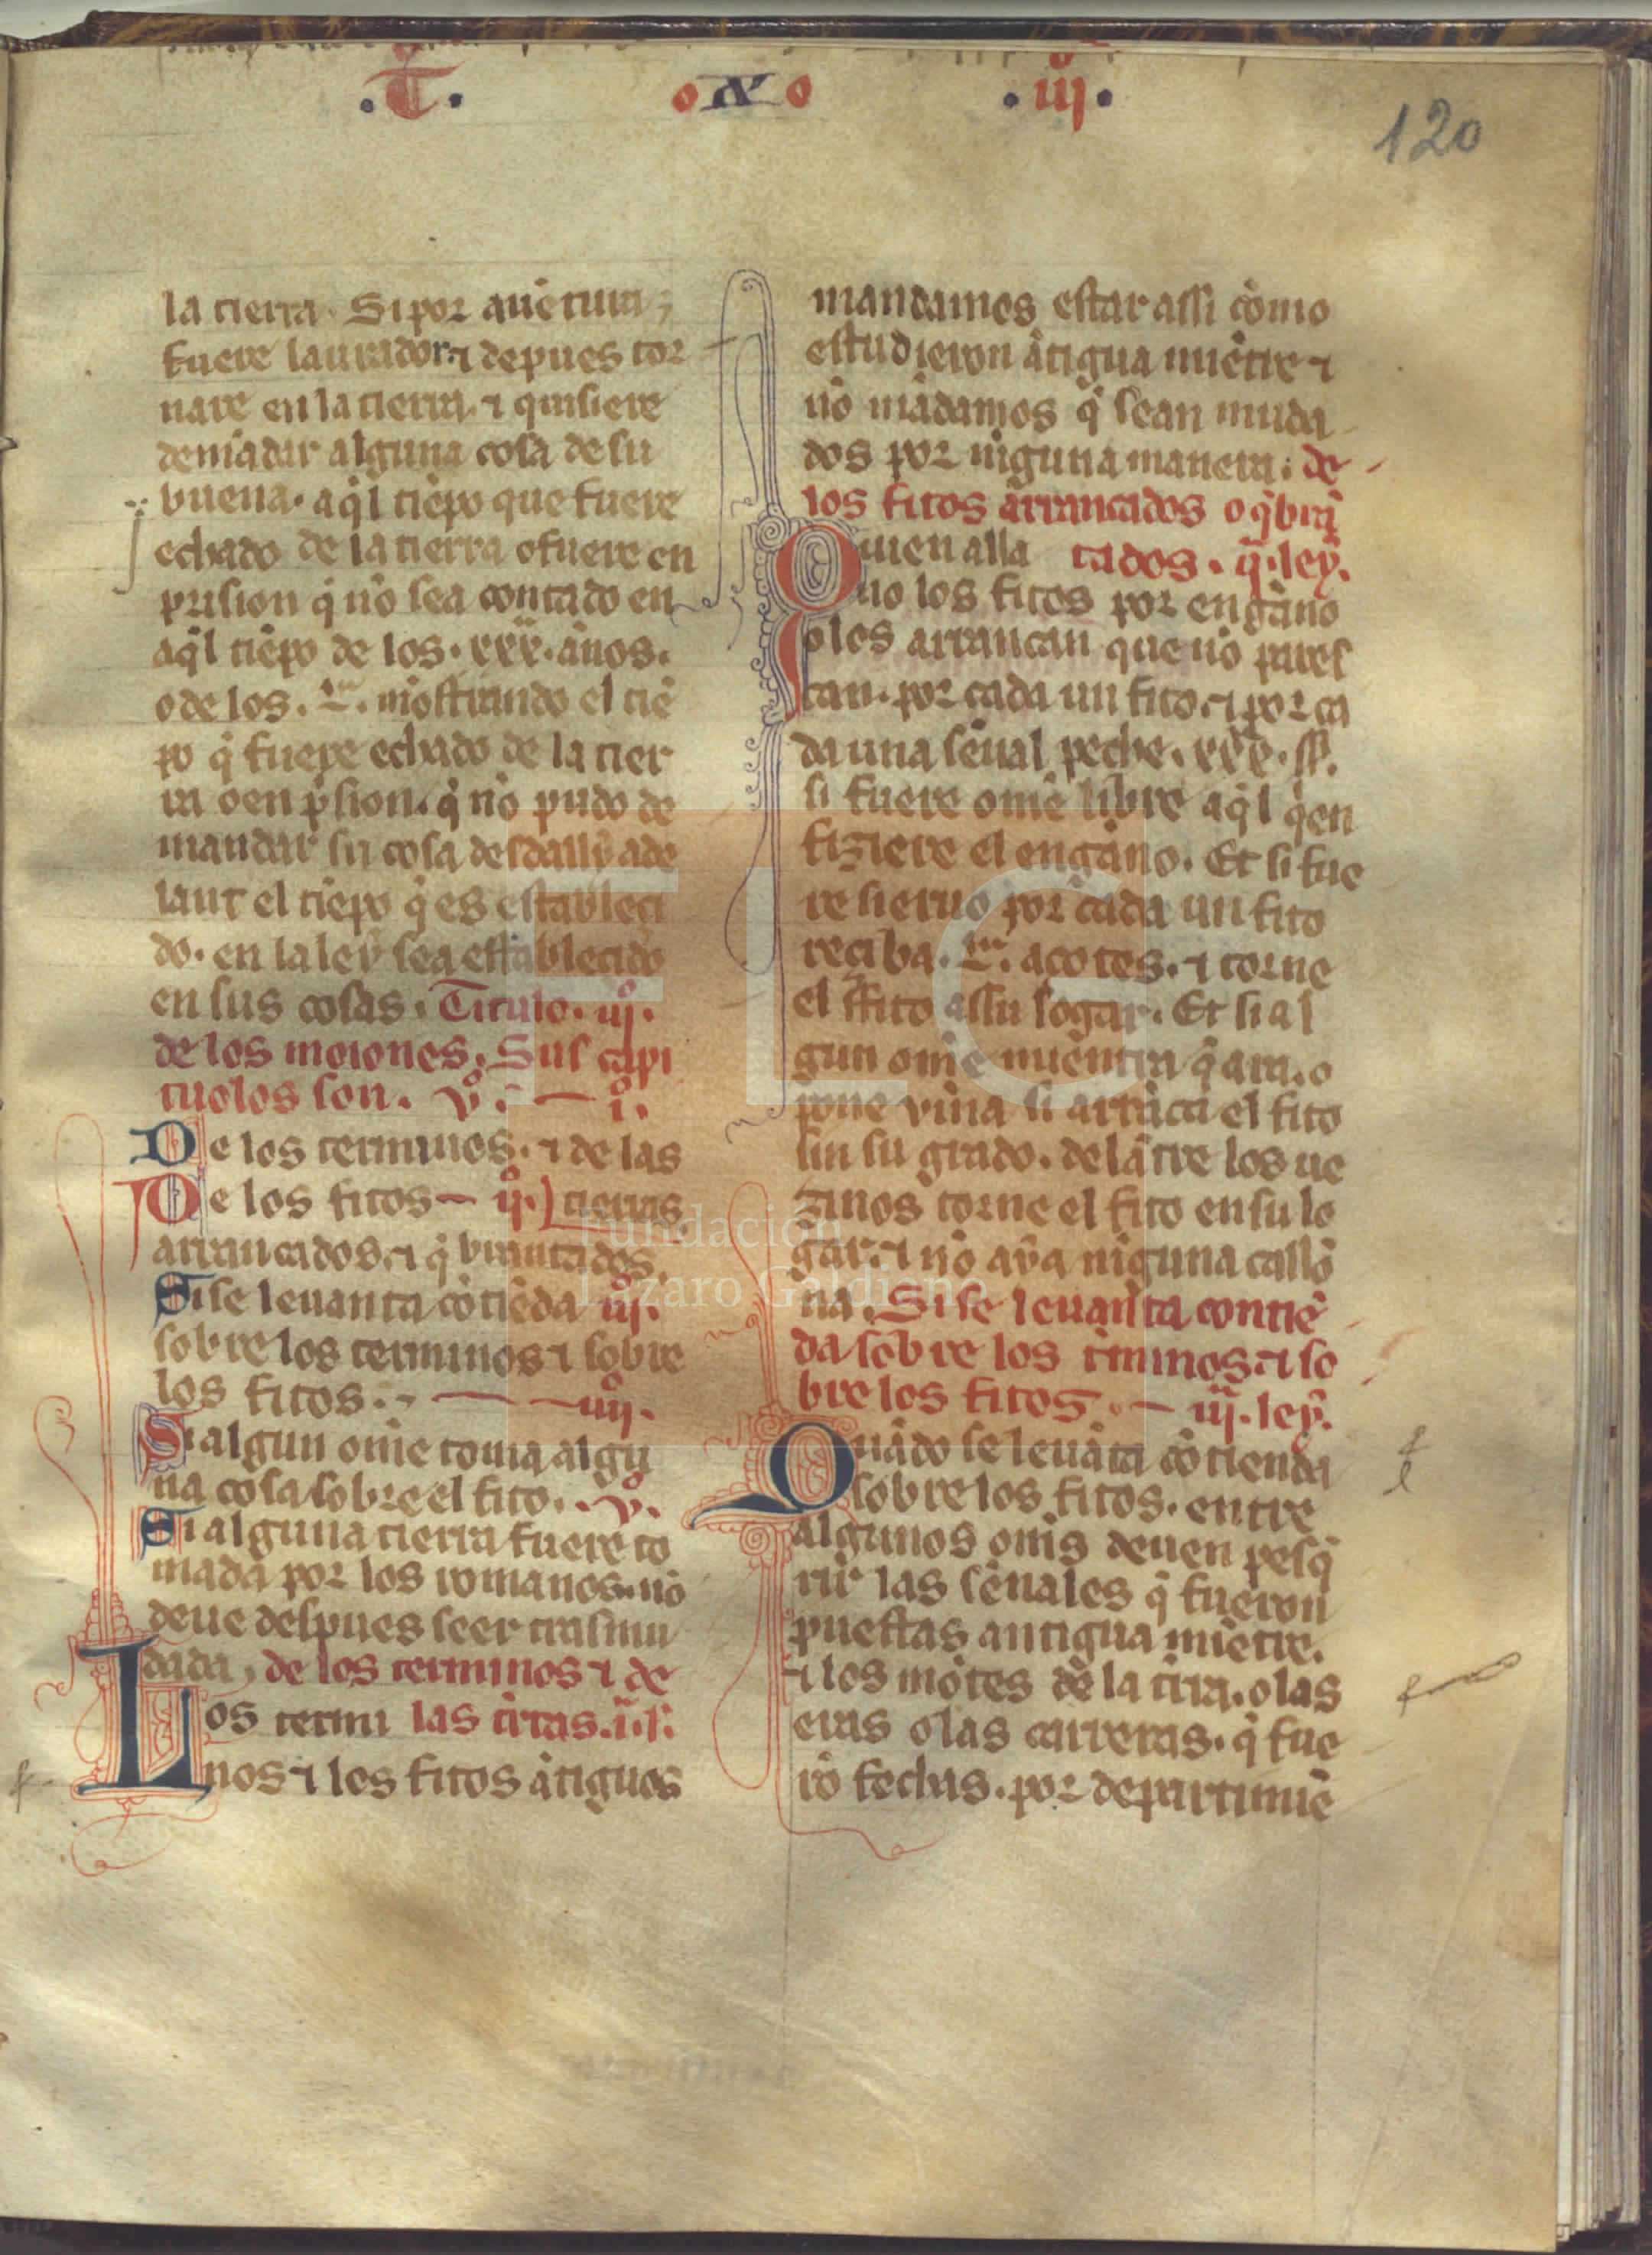 .T. o X o .iij.
120
la tierra. Si por auẽtura
fuere laurador. ⁊ depues tor
nare en la tierra. ⁊ quisiere
demãdar alguna cosa de su
buena. aq̃l tiẽpo que fuere
echado de la tierra o fuere en
prision q̃ nõ sea contado en
aq̃l tiẽpo de los .xxx. años.
o de los .L. mostrando el tiẽ
po q̃ fuere echado de la tier
ra o en p̃sion. q̃ nõ pudo de
mandar su cosa desdally ade
lant el tiẽpo q̃ es estableci
do. en la ley sea establecido
en sus cosas. Titulo .iijº.
de los moiones. Sus capi
tuolos son. vº. — iº.
De los terminos. ⁊ de las
De los fitos — ijº. tierras.
arrancados. ⁊ q̃brantados.
Si se leuanta cõtiẽda iijº.
sobre los terminos ⁊ sobre
los fitos. — — iiijº.
Si algun omẽ toma algu
na cosa sobre el fito. . vº.
Si alguna tierra fuere to
mada por los romanos. nõ
deue despues seer trasmu
dada. de los terminos ⁊ de
Los termi las tr̃ras. iª. l.
nos ⁊ los fitos ãtiguos
mandamos estar assi cõmo
estudieron ãtigua miẽtre ⁊
nõ mãdamos q̃ sean muda
dos por niguna manera. de
los fitos arrancados o q̃brã
Quien alla tados. ijª. ley.
no los fitos por engãno
o los arrancan que nõ pares
can. por cada un fito. ⁊ por ca
da una señal peche. xxx. ss.
si fuere omẽ libre aq̃l q̃ en
fiziere el engãno. Et si fue
re sieruo por cada un fito
reciba .L. açotes. ⁊ torne
el ffito assu logar. Et si al
gun omẽ miẽntra q̃ ara. o
pone viña si arrãca el fito
sin su grado. delãtre los ue
zinos torne el fito en su lo
gar. ⁊ nõ aya niguna callõ
ña. Si se leuanta contiẽ
da sobre los t̃minos. ⁊ so
bre los fitos. — iijª. ley.
Quãdo se leuãta cõtienda
sobre los fitos. entre
algunos om̃s deuen pesq̃
rir las señales q̃ fueron
puestas antigua miẽtre.
⁊ los mõtes de la tr̃ra. o las
eras o las carreras. q̃ fue
rõ fechas. por departimiẽ
Fundación
Lázaro Galdiano
FLG